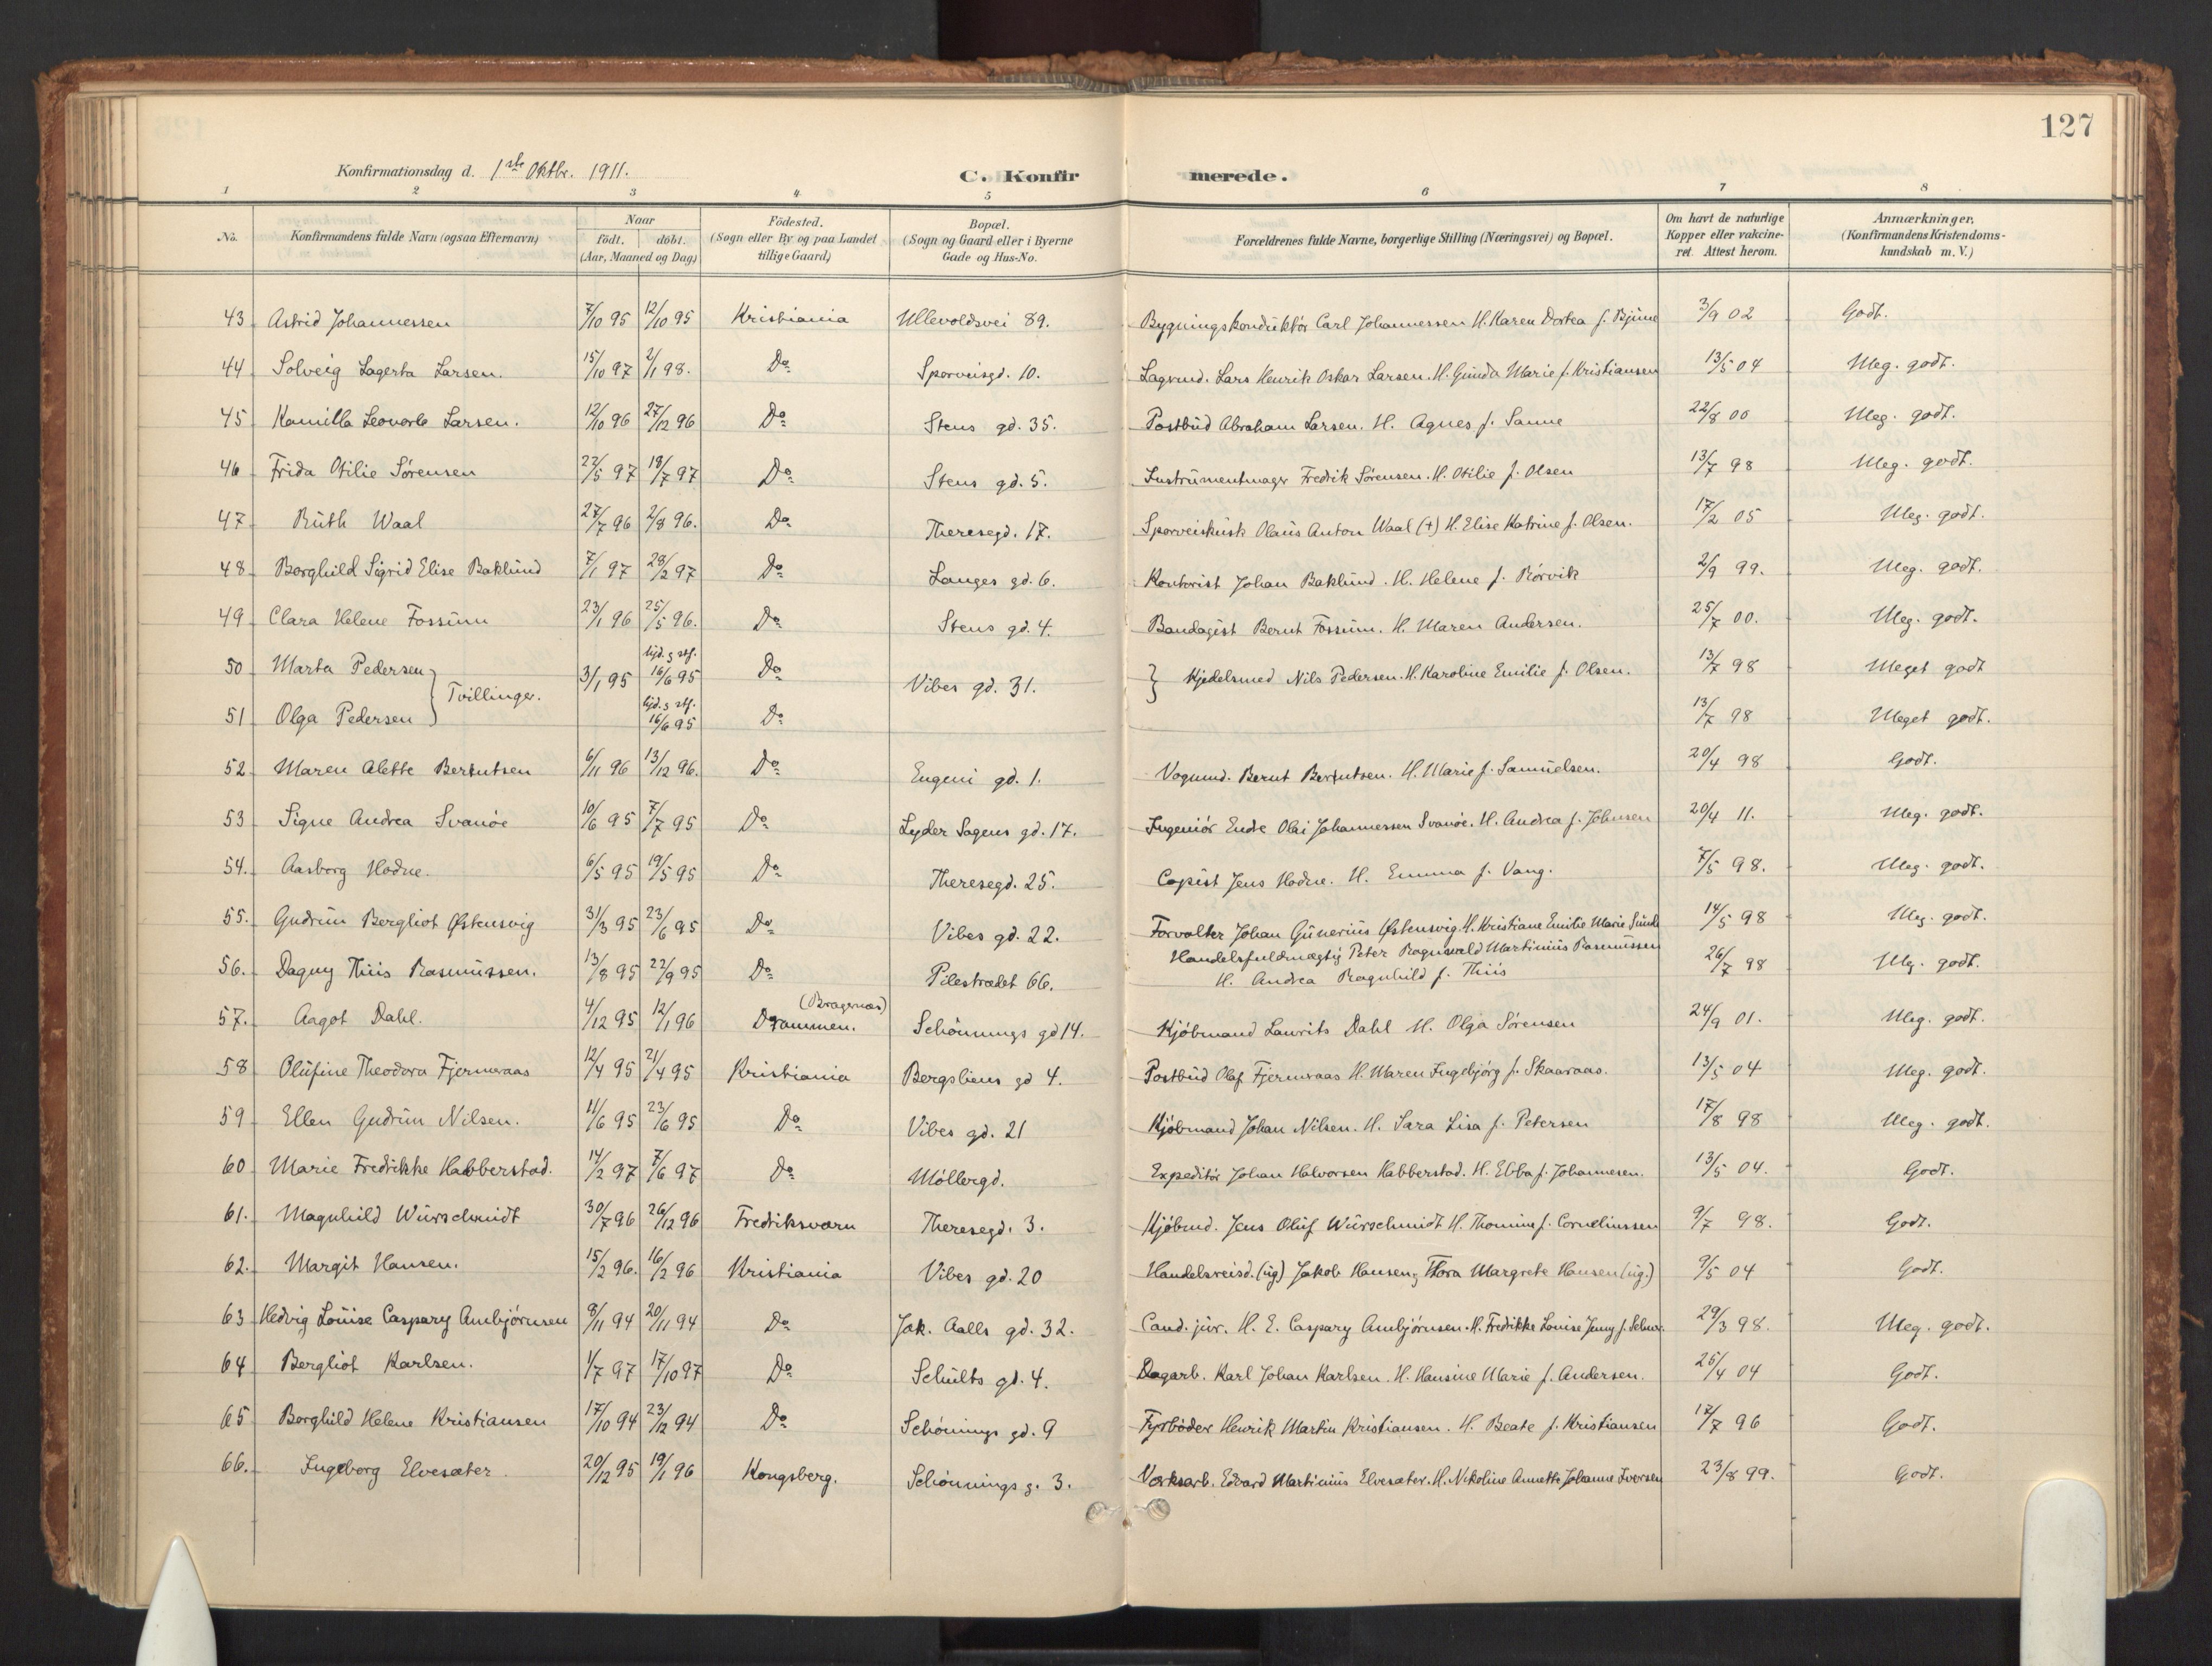 127
Konfirmationsdag d. 1ste Oktbr. 1911.
C. Konfirmerede.
1 2 3 4 5 6 7 8
No. Konfirmandens fulde Navn (ogsaa Efternavn) Naar födt. döbt. (Aar, Maaned og Dag) Födested. (Sogn eller By og paa Landet tillige Gaard) Bopæl. (Sogn og Gaard eller i Byerne Gade og Hus-No. Forældrenes fulde Navne, borgerlige Stilling (Næringsvei) og Bopæl. Om havt de naturlige Kopper eller vakcineret. Attest herom. Anmærkninger. (Konfirmandens Kristendomskundskab m. V.)
43 Astrid Johannessen 7/10 95 12/10 95 Kristiania Ullevoldsvei 89. Bygningskonduktör Carl Johannessen H. Karen Dortea f. 3/9 02 Godt.
44 Solveig Lagerta Larsen. 15/10 97 2/1 98. Do Sporveisgd. 10. Lagermd. Lars Henrik Oskar Larsen. H. Gunda Marie f. Kristiansen 13/5 04 Meg. godt.
45 Kamilla Larsen. 12/10 96 27/12 96 Do Stens gd. 35. Postbud Abraham Larsen. H. Agnes f. Sanne 22/8 00 Meg. godt.
46 Frida Otilie Sørensen 22/5 97 18/7 97 Do Stens gd. 5. Instrumentmagr Fredrik Sörensen. H. Otilie f. Olsen 13/7 98 Meg. godt.
47 Ruth Waal 27/7 96 2/8 96. Do Theresegd. 17. Sporveiskusk Olaus Anton Waal (+) H. Elise Katrine f. Olsen. 17/2 05 Meg. godt.
48 Borghild Sigrid Elise Baklund 7/1 97 28/2 97 Do Langes gd. 6. Kontorist Johan Baklund. H. Helene f. Rörvik 2/9 99. Meg. godt.
49 Clara Helene Fossum 23/1 96 25/5 96. Do Stens gd. 4. Bandagist Bernt Fossum. H. Maren Andersen. 25/7 00. Meg. godt.
50 Marta Pedersen } Tvillinger. 3/1 95 hjd. s stf. 16/6 95 Do Vibes gd. 31. } Kjedelsmed Nils Pedersen. H. Karoline Emilie f. Olsen. 13/7 98 Meget godt
51 Olga Pedersen hjd. s stf. 16/6 95 Do 13/7 98 Meget godt.
52 Maren Alette Berntsen 6/11 96 13/12 96. Do Eugeni gd. 1. Vognmd. Bernt Berntsen. H. Marie f. Samuelsen. 20/4 98 Godt.
53 Signe Andrea Svanöe 10/6 95 7/7 95 Do Lyder Sagens gd. 17. Ingeniör Endre Olai Johannessen Svanöe. H. Andrea f. Johnsen 20/4 11. Meg. godt.
54. Aasborg Hodne. 6/5 95 19/5 95 Do Theresegd. 25. Copist Jens Hodne. H. Emma f. Vang. 7/5 98. Meg. godt.
55. Gudrun Bergliot Østensvig 31/3 95 23/6 95 Do Vibes gd. 22. Forvalter Johan Gunerius Østensvig. H. Kristiane Emilie Marie 14/5 98 Meg. godt.
56. Dagny Thiis Rasmussen. 13/8 95 22/9 95 Do Pilestrædet 66. Handelsfuldmægtig Peter Ragnvald Martinius Rasmussen
H. Andrea Ragnhild f. Thiis 26/7 98 Meg. godt.
57. Aagot Dahl. 4/12 95 12/1 96 (Bragernæs) Drammen. Schönnings gd 14. Kjöbmand Laurits Dahl H. Olga Sörensen 24/9 01. Meg. godt.
58 Olufine Theodora Fjermeraas 12/4 95 21/4 95 Kristiania Bergsliens gd 4. Postbud Olaf Fjermeraas H. Maren Ingebjörg f. Skaaraas. 13/5 04 Meg. godt.
59 Ellen Gudrun Nilsen. 11/6 95 23/6 95 Do Vibes gd. 21 Kjöbmand Johan Nilsen. H. Sara Lisa f. Petersen 17/8 98 Meg. godt.
60 Marie Fredrikke Habberstad. 14/2 97 7/6 97 Do Möllergd. Expeditör Johan Halvorsen Habberstad. H. Ebba f. Johannesen. 13/5 04. Godt.
61. Magnhild Würschmidt 30/7 96 26/12 96 Fredriksværn Theresegd. 3. Kjöbmd. Jens Oluf Würschmidt H. Thomine f. Corneliussen 9/7 98. Godt.
62. Margit Hansen. 15/2 96. 16/2 96 Kristiania Vibes gd. 20 Handelsreisd. (ug) Jakob Hansen, Thora Margrete Hansen (ug.) 9/5 04 Godt.
63 Hedvig Louise Caspary Ambjörnsen 8/11 94 20/11 94 Do Jak. Aalls gd. 32. Cand. jur. H. E. Caspary Ambjörnsen. H. Fredrikke Louise Jenny f. 29/3 98. Meg. godt.
64 Bergliot Karlsen. 1/7 97 17/10 97 Do Schults gd. 4. Dagarb. Karl Johan Karlsen. H. Hansine Marie f. Andersen. 25/4 04 Godt.
65 Borghild Helene Kristiansen 17/10 94 23/12 94 Do Schönings gd. 9 Fyrböder Henrik Martin Kristiansen. H. Beate f. Kristiansen 17/7 96 Godt.
66. Ingeborg Elvesæter. 20/12 95 19/1 96 Kongsberg. Schönnings g. 3. Værksarb. Edvard Martinius Elvesæter. H. Nikoline Annette Johanne Iversen 23/8 99. Godt.